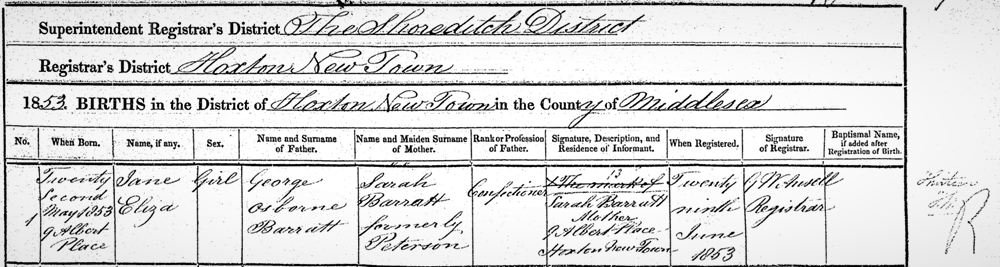 Superintendent Registrar's District The Shoreditch District
Registrar's District Hoxton New Town
1853. BIRTHS in the District of Hoxton New Town in the County of Middlesex
No. When Born. Name, if any. Sex. Name and Surname of Father. Name and Maiden Surname of Mother. Rank or Profession of Father. Signature, Description, and Residence of Informant. When Registered. Signature of Registrar. Baptismal Name, if added after Registration of Birth.
1
Twenty
Second
May 1853
9 Albert
Place
Jane
Eliza
Girl
George
Osborne
Barratt
Sarah
Barratt
formerly
Peterson
Confectioner
13
X The mark of
Sarah Barratt
Mother
9 Albert Place
Hoxton New Town
Twenty
ninth
June
1853
G W Ansell
Registrar